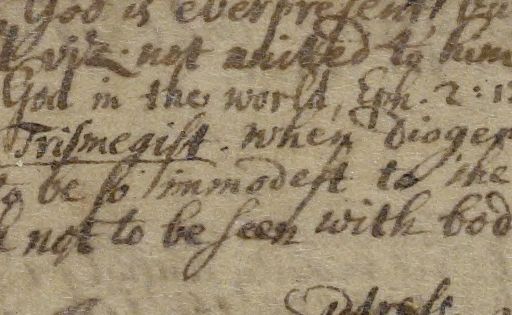 God is ever present
viz. not united to him
God in the world, Eph. 2: 1
Trismegist. when Diogen
to be so immodest to the
not to be seen with bod